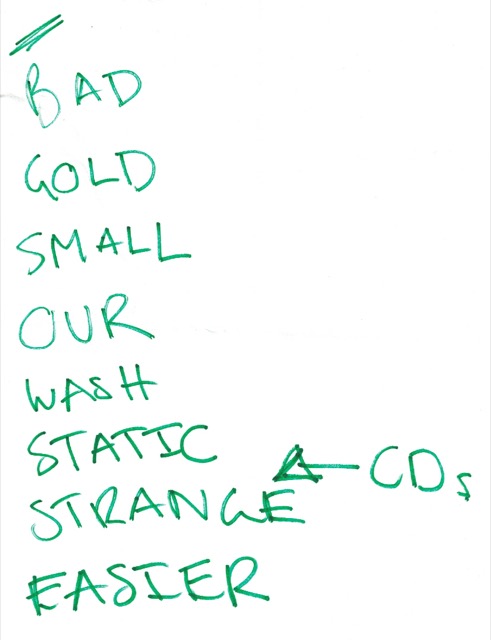 BAD
GOLD
SMALL
OUR
WASH
STATIC
STRANGE ← CDs
EASIER